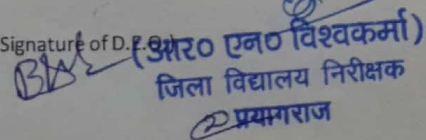 Signature of D.E.O.
(आर० एन० विश्वकर्मा)
जिला विद्यालय निरीक्षक
प्रयागराज